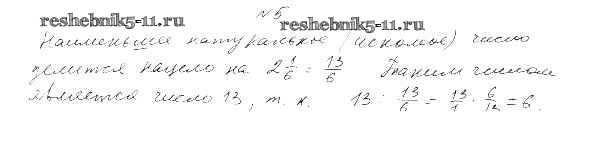 № 5
reshebnik5-11.ru reshebnik5-11.ru
Наименьшее натуральное (искомое) число
делится нацело на 2 1/6 = 13/6 Таким числом
является число 13, т. к. 13 : 13/6 = 13/1 · 6/13 = 6.